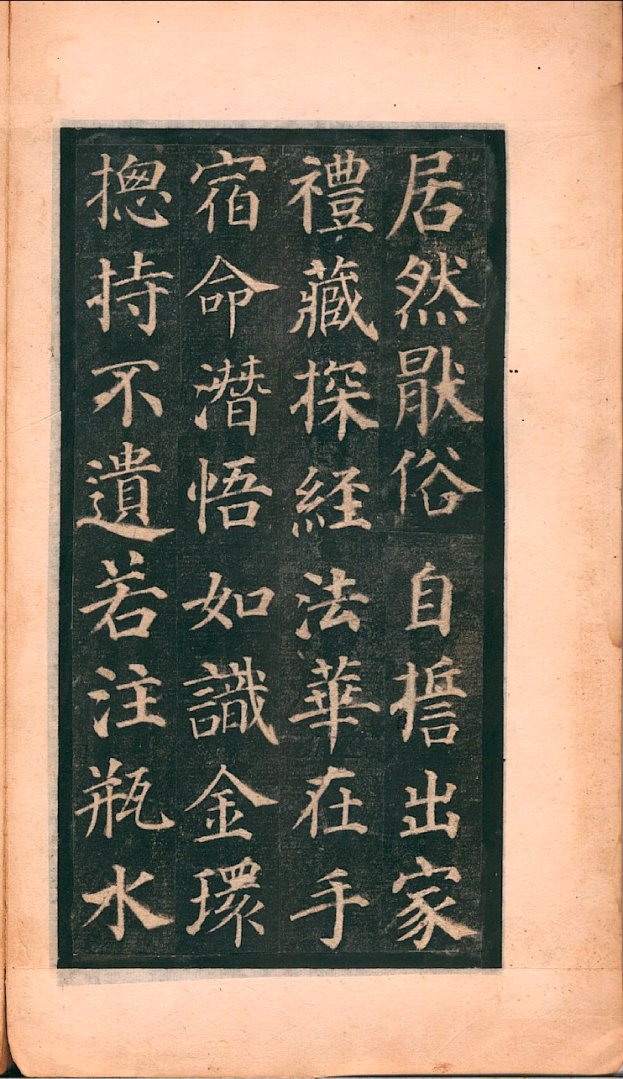 居然猒俗自擔出家
禮藏探經法華在手
宿命潛悟如識金環
揔持不遺若注瓶水